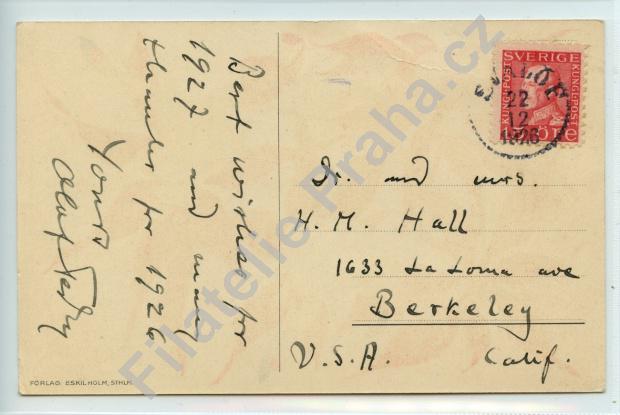 Best wishes for
1927 and many
thanks for 1926
Yours
Olof
Dr. and mrs.
H. M. Hall
1633 La Loma ave
Berkeley
U.S.A. Calif.
SVERIGE
KUNGL·POST
KUNGL·POST
ÖRE
22
12
1926
FÖRLAG ESKIL HOLM, STHLM
Filatelie Praha.cz